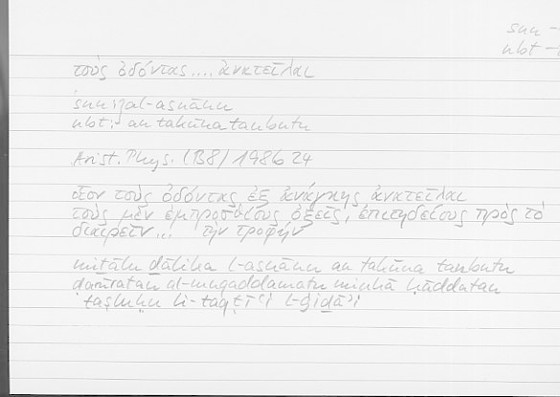 snn –
nbt –
τοὺς ὀδόντας .... ἀνατεῖλαι
snn: al-asnānu
nbt: an takūna tanbutu
Arist. Phys. (B8) 198b 24
οἷον τοὺς ὀδόντας ἐξ ἀνάγκης ἀνατεῖλαι
τοὺς μὲν ἐμπροσθίους ὀξεῖς, ἐπιτηδείους πρὸς τὸ
διαιρεῖν... τὴν τροφήν
miṯālu ḏālika l-asnānu an takūna tanbutu
ḍarūratan al-muqaddamatu minhā ḥāddatan
taṣluḥu li-taqṭīʿi l-ġiḏāʾi